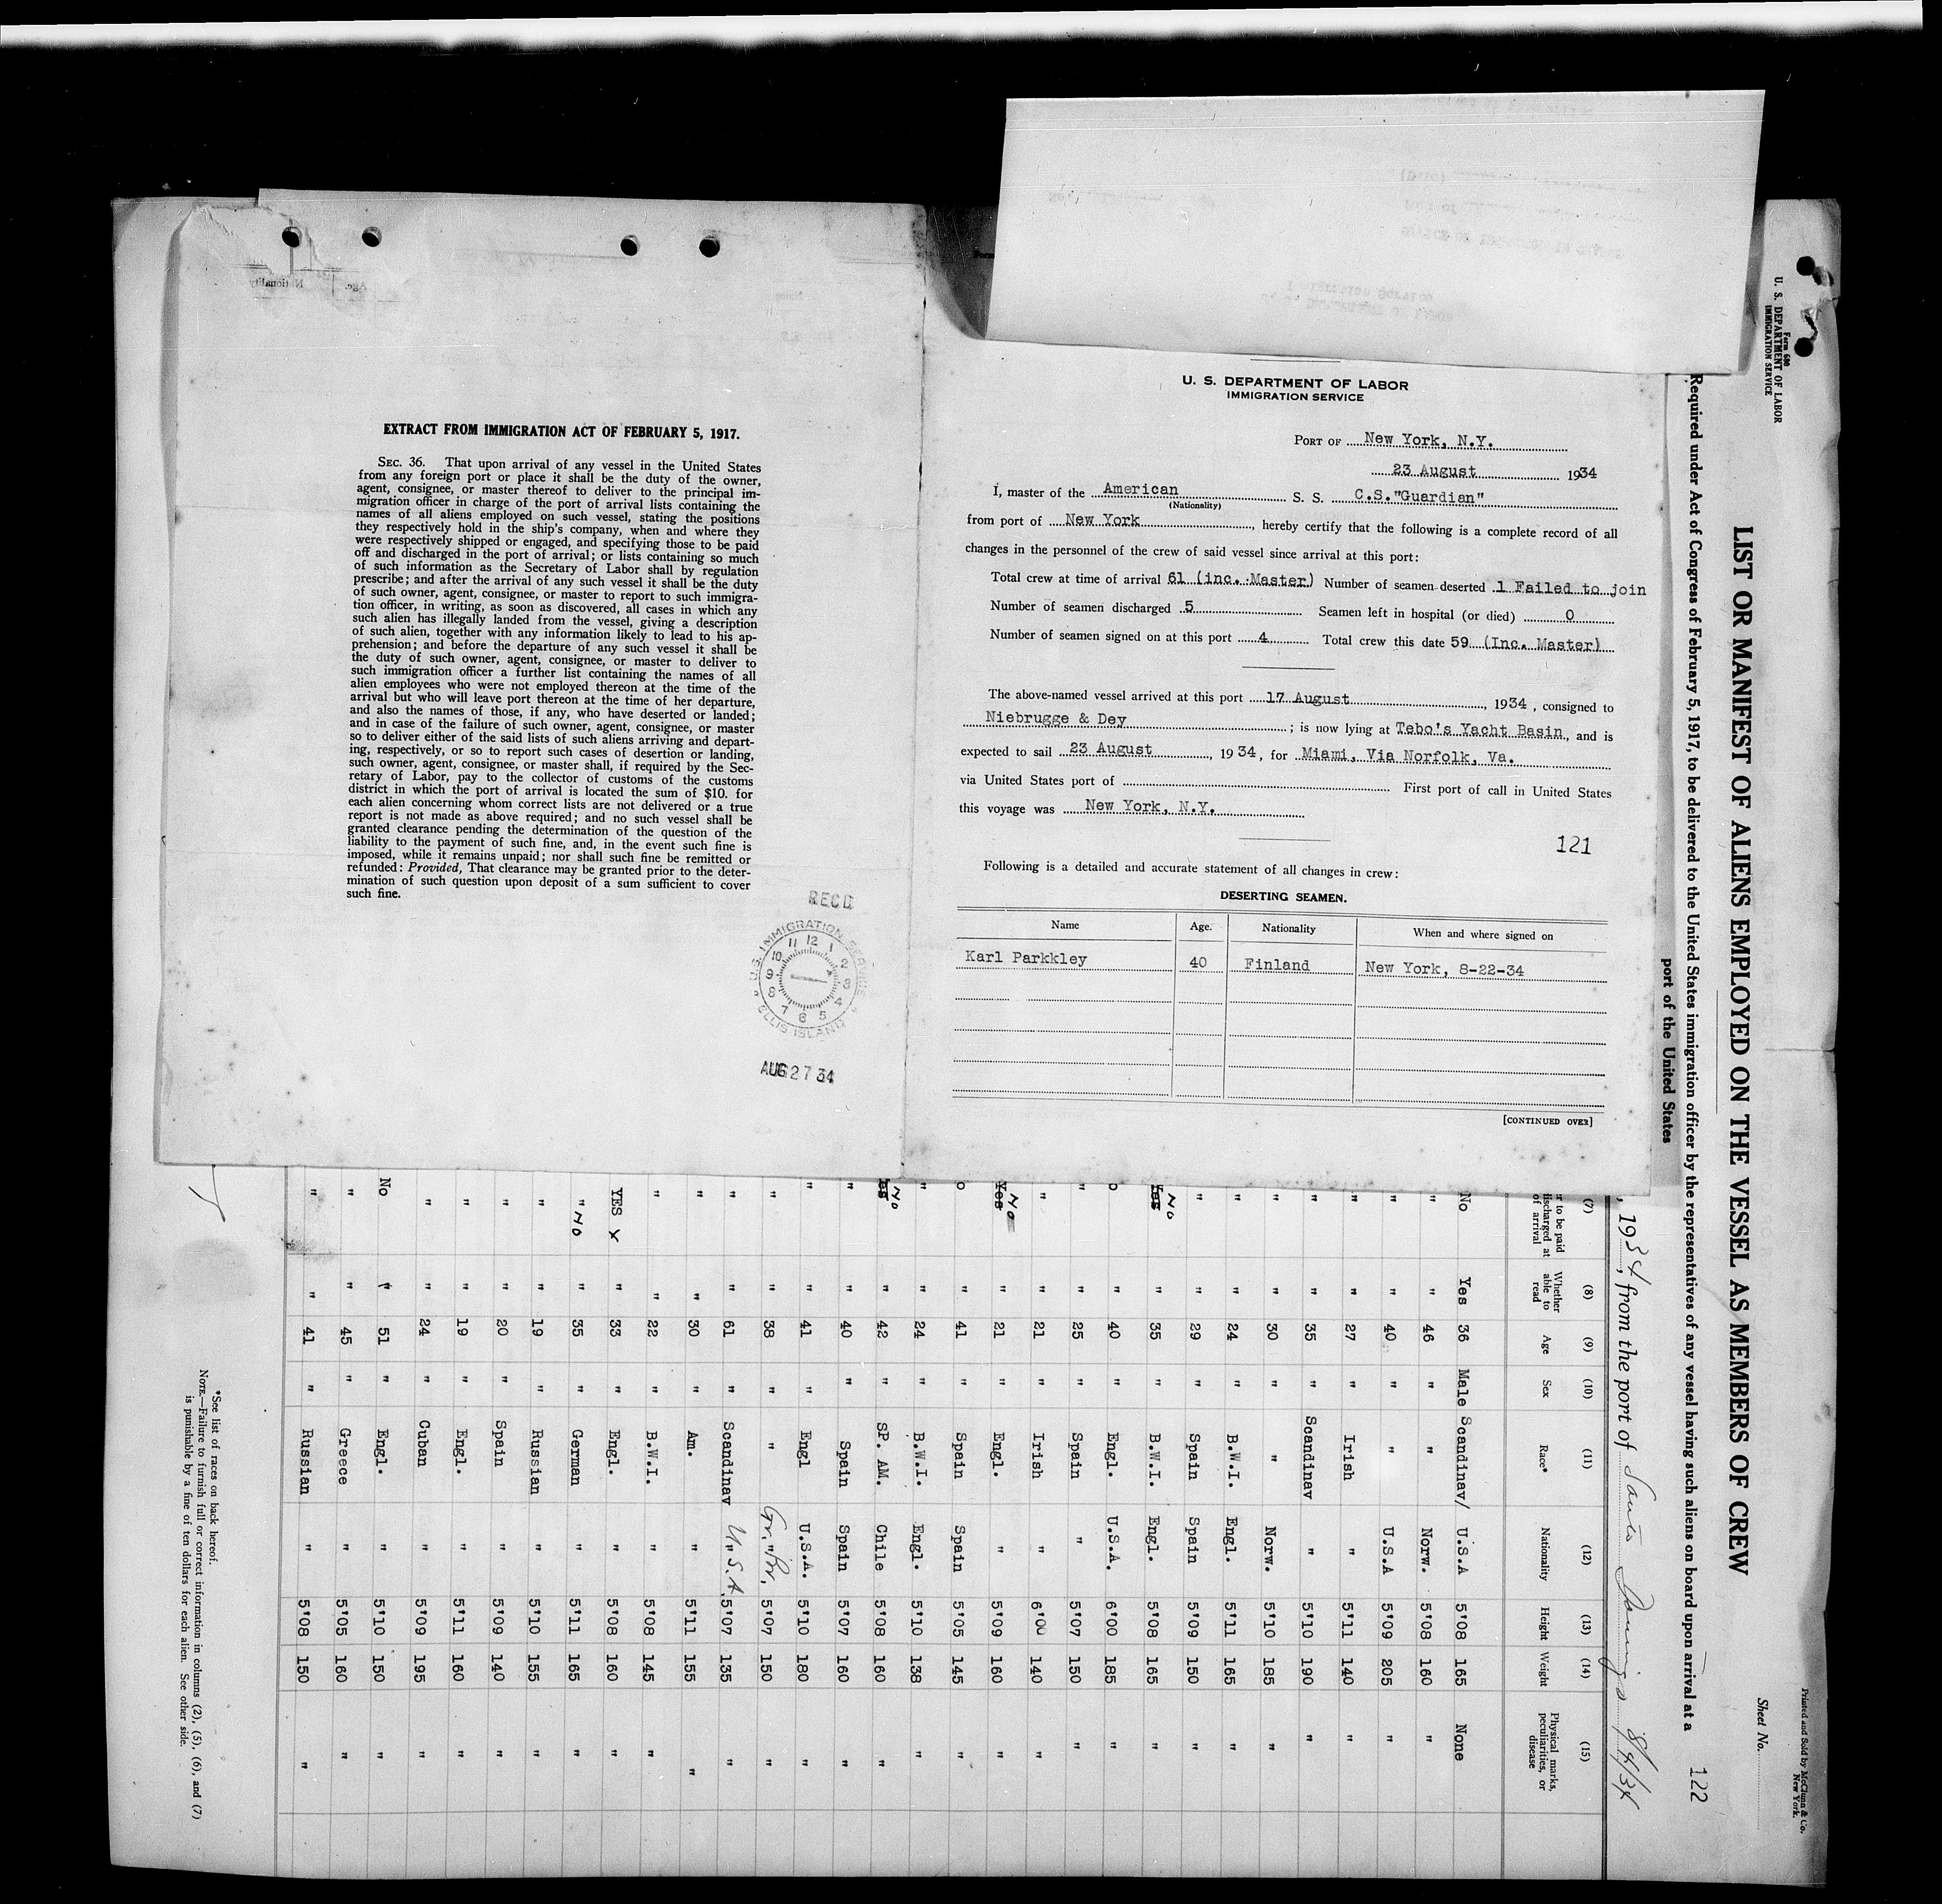 EXTRACT FROM IMMIGRATION ACT OF FEBRUARY 5, 1917.
SEC. 36. That upon arrival of any vessel in the United States
from any foreign port or place it shall be the duty of the owner,
agent, consignee, or master thereof to deliver to the principal im-
migration officer in charge of the port of arrival lists containing the
names of all aliens employed on such vessel, stating the positions
they respectively hold in the ship's company, when and where they
were respectively shipped or engaged, and specifying those to be paid
off and discharged in the port of arrival; or lists containing so much
of such information as the Secretary of Labor shall by regulation
prescribe; and after the arrival of any such vessel it shall be the duty
of such owner, agent, consignee, or master to report to such immigra-
tion officer, in writing, as soon as discovered, all cases in which any
such alien has illegally landed from the vessel, giving a description
of such alien, together with any information likely to lead to his ap-
prehension; and before the departure of any such vessel it shall be
the duty of such owner, agent, consignee, or master to deliver to
such immigration officer a further list containing the names of all
alien employees who were not employed thereon at the time of the
arrival but who will leave port thereon at the time of her departure,
and also the names of those, if any, who have deserted or landed;
and in case of the failure of such owner, agent, consignee, or master
so to deliver either of the said lists of such aliens arriving and depart-
ing, respectively, or so to report such cases of desertion or landing,
such owner, agent, consignee, or master shall, if required by the Sec-
retary of Labor, pay to the collector of customs of the customs
district in which the port of arrival is located the sum of $10. for
each alien concerning whom correct lists are not delivered or a true
report is not made as above required; and no such vessel shall be
granted clearance pending the determination of the question of the
liability to the payment of such fine, and, in the event such fine is
imposed, while it remains unpaid; nor shall such fine be remitted or
refunded: Provided, That clearance may be granted prior to the deter-
mination of such question upon deposit of a sum sufficient to cover
such fine.
RECD
U.S. IMMIGRATION SERVICE
ELLIS ISLAND
12 1 2 3 4 5 6 7 8 9 10 11
AUG 27 34
U. S. DEPARTMENT OF LABOR
IMMIGRATION SERVICE
PORT OF New York, N.Y.
23 August 1934
I, master of the American S. S. C.S."Guardian"
(Nationality)
from port of New York, hereby certify that the following is a complete record of all
changes in the personnel of the crew of said vessel since arrival at this port:
Total crew at time of arrival 61 (inc. Master) Number of seamen deserted 1 Failed to join
Number of seamen discharged 5 Seamen left in hospital (or died) 0
Number of seamen signed on at this port 4 Total crew this date 59 (Inc. Master)
The above-named vessel arrived at this port 17 August, 1934, consigned to
Niebrugge & Dey; is now lying at Tebo's Yacht Basin, and is
expected to sail 23 August, 1934, for Miami, Via Norfolk, Va.
via United States port of First port of call in United States
this voyage was New York, N.Y.
121
Following is a detailed and accurate statement of all changes in crew:
DESERTING SEAMEN.
Name Age. Nationality When and where signed on
Karl Parkkley 40 Finland New York, 8-22-34
[CONTINUED OVER]
Form 680
U. S. DEPARTMENT OF LABOR
IMMIGRATION SERVICE
Printed and Sold by McClunn & Co.
New York.
Sheet No.
LIST OR MANIFEST OF ALIENS EMPLOYED ON THE VESSEL AS MEMBERS OF CREW
Required under Act of Congress of February 5, 1917, to be delivered to the United States immigration officer by the representatives of any vessel having such aliens on board upon arrival at a
port of the United States
122
, 1934, from the port of Santo Domingo 8/4/34
(7) (8) (9) (10) (11) (12) (13) (14) (15)
to be paid discharged at of arrival Whether able to read Age Sex Race* Nationality Height Weight Physical marks, peculiarities, or disease
No Yes 36 Male Scandinav/ U.S.A 5'08 165 None
" " 46 " " Norw. 5'08 160 "
" " 40 " " U.S.A 5'09 205 "
" " 27 " Irish " 5'11 140 "
" " 35 " Scandinav " 5'10 190 "
" " 30 " " Norw. 5'10 185 "
" " 24 " B.W.I. Engl. 5'11 165 "
" " 29 " Spain Spain 5'09 150 "
Yes NO " 35 " B.W.I. Engl. 5'08 165 "
o " 40 " Engl. U.S.A. 6'00 185 "
" " 25 " Spain " 5'07 150 "
" " 21 " Irish " 6'00 140 "
Yes NO " 21 " Engl. " 5'09 160 "
o " 41 " Spain Spain 5'05 145 "
" " 24 " B.W.I. Engl. 5'10 138 "
es NO " 42 " SP. AM. Chile 5'08 160 "
" " 40 " Spain Spain 5'07 160 "
" " 41 " Engl U.S.A. 5'10 180 "
" " 38 " " Gr. Br. 5'07 150 "
" " 61 " Scandinav U.S.A. 5'07 135 "
" " 30 " Am. " 5'11 155 "
" " 22 " B.W.I. " 5'08 145 "
YES x " 33 " Engl. " 5'08 160 "
" NO " 35 " German " 5'11 165 "
" " 19 " Russian " 5'10 155 "
" " 20 " Spain " 5'09 140 "
" " 19 " Engl. " 5'11 160 "
" " 24 " Cuban " 5'09 195 "
No " 51 " Engl. " 5'10 150 "
" " 45 " Greece " 5'05 160 "
" " 41 " Russian " 5'08 150 "
*See list of races on back hereof.
NOTE.—Failure to furnish full or correct information in columns (2), (5), (6), and (7)
is punishable by a fine of ten dollars for each alien. See other side.